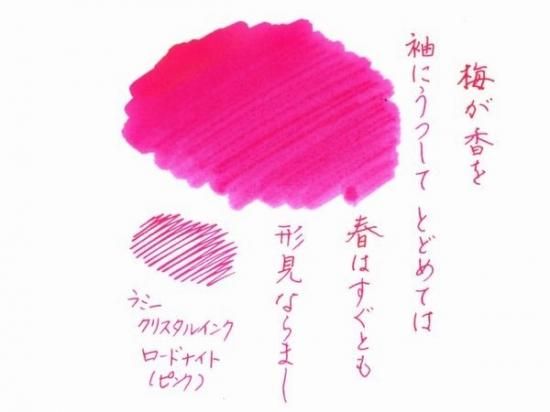 梅が香を
袖にうつして とどめては
春はすぐとも
形見ならまし
ラミー
クリスタルインク
ロードナイト
(ピンク)